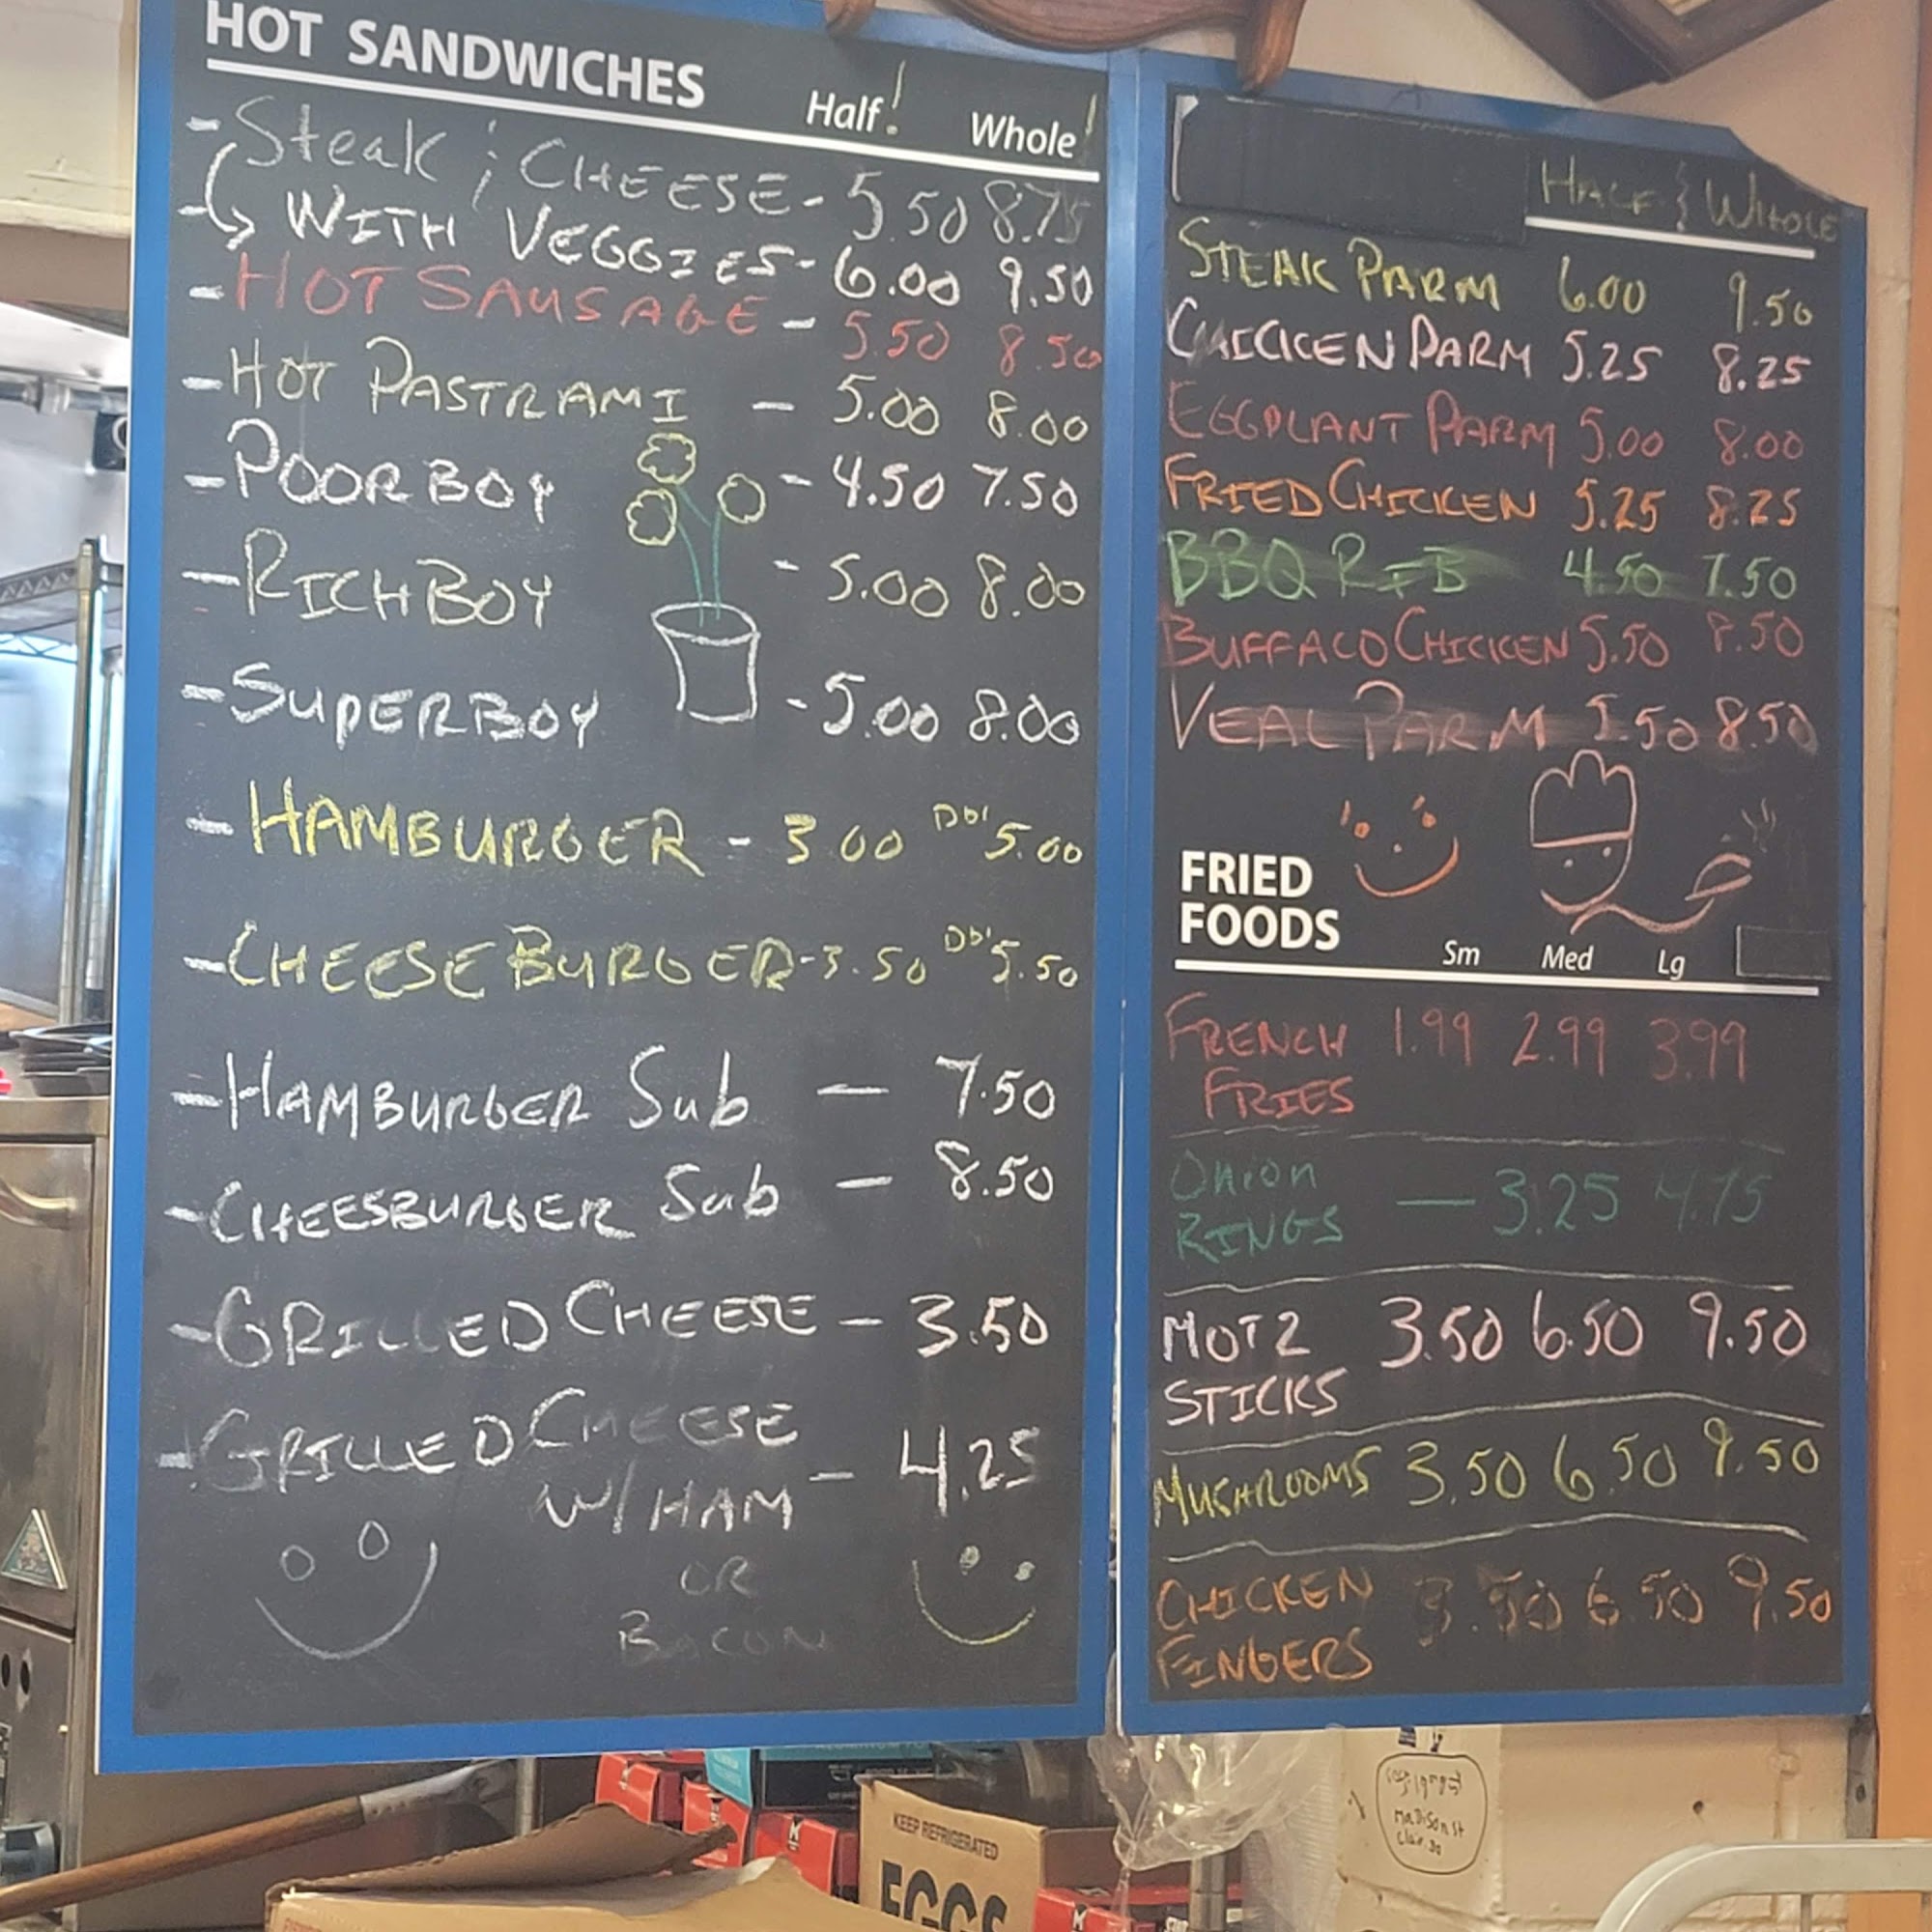 HOT SANDWICHES
Half! Whole!
- Steak ; CHEESE - 5.50 8.75
- WITH VEGGIES - 6.00 9.50
- HOT SAUSAGE - 5.50 8.50
- HOT PASTRAMI - 5.00 8.00
- POOR BOY - 4.50 7.50
- RICH BOY - 5.00 8.00
- SUPERBOY - 5.00 8.00
- HAMBURGER - 3.00 Dbl 5.00
- CHEESE BURGER - 3.50 Dbl 5.50
- HAMBURGER Sub — 7.50
- CHEESBURGER Sub — 8.50
- GRILLED CHEESE - 3.50
- GRILLED CHEESE
W/HAM - 4.25
OR
BACON
HALF & WHOLE
STEAK PARM 6.00 9.50
CHICKEN PARM 5.25 8.25
EGGPLANT PARM 5.00 8.00
FRIED CHICKEN 5.25 8.25
BBQ RIB 4.50 7.50
BUFFALO CHICKEN 5.50 8.50
VEAL PARM 5.50 8.50
FRIED
FOODS
Sm Med Lg
FRENCH 1.99 2.99 3.99
FRIES
Onion
RINGS — 3.25 4.75
MOTZ 3.50 6.50 9.50
STICKS
MUSHROOMS 3.50 6.50 9.50
CHICKEN 3.50 6.50 9.50
FINGERS
KEEP REFRIGERATED
EGGS
MaDison st